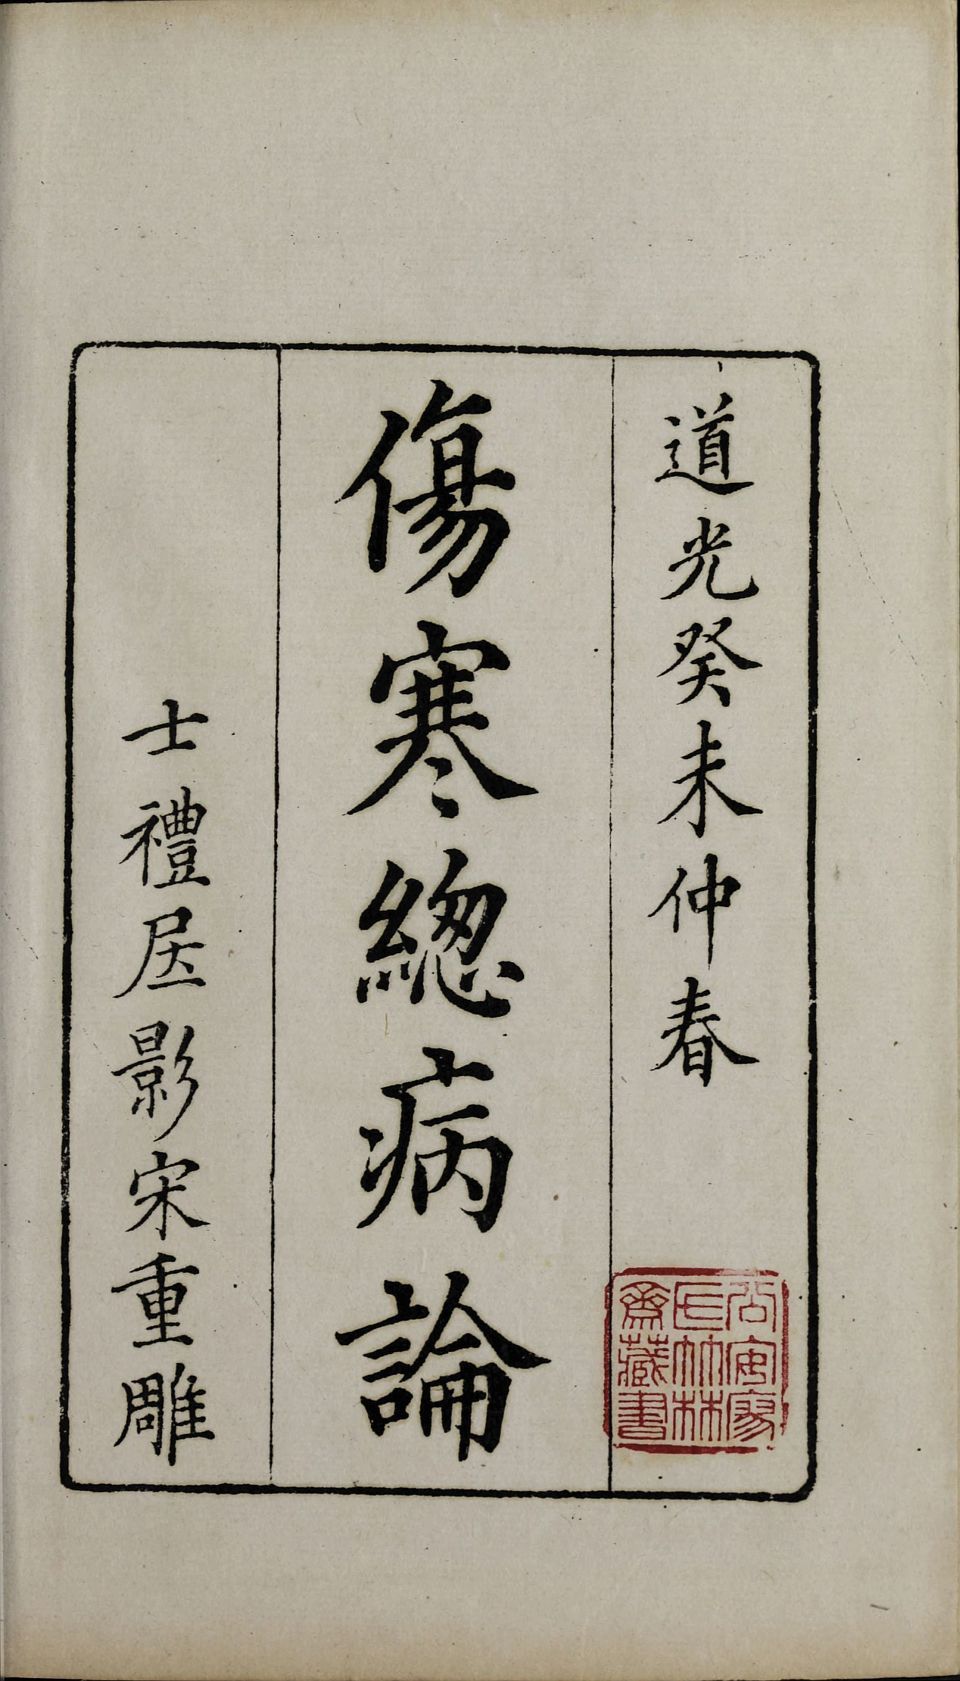 道光癸未仲春
傷寒緫病論
士禮居影宋重雕
齋藏書